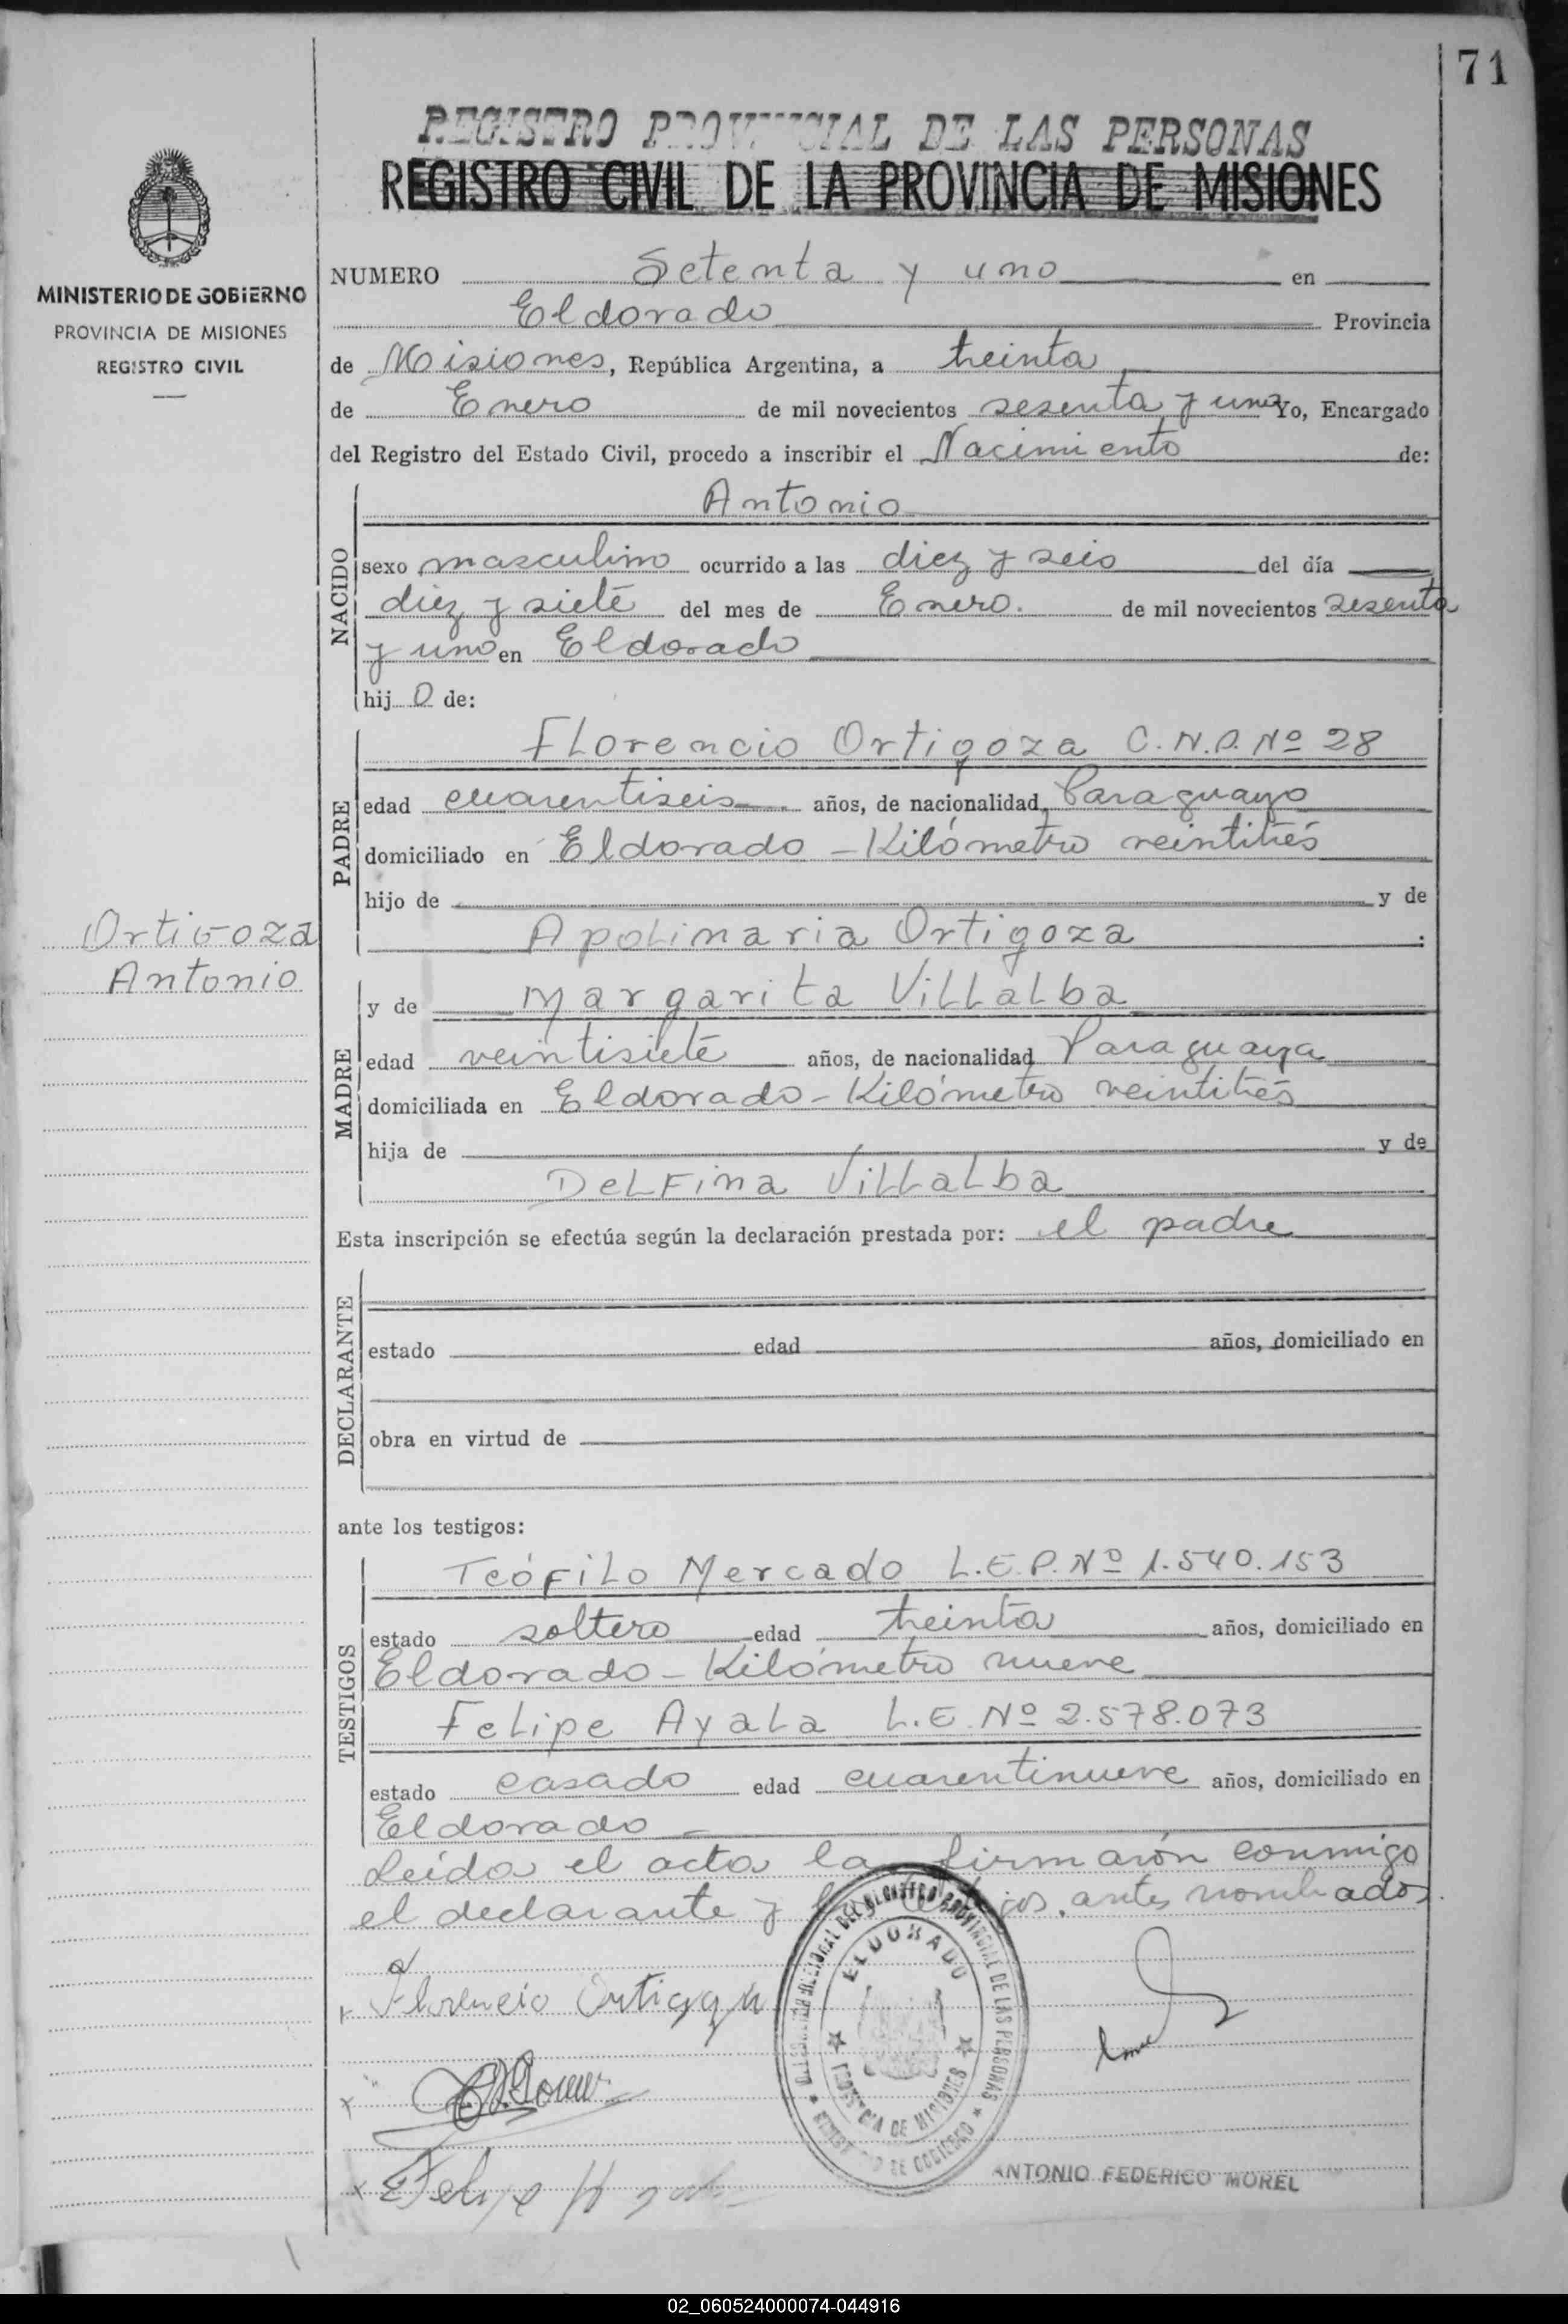 71
REGISTRO PROVINCIAL DE LAS PERSONAS
REGISTRO CIVIL DE LA PROVINCIA DE MISIONES
MINISTERIO DE GOBIERNO
PROVINCIA DE MISIONES
REGISTRO CIVIL
NUMERO Setenta y uno en
Eldorado Provincia
de Misiones, República Argentina, a treinta
de Enero de mil novecientos sesenta y uno Yo, Encargado
del Registro del Estado Civil, procedo a inscribir el Nacimiento de:
NACIDO
Antonio
sexo masculino ocurrido a las diez y seis del día
diez y siete del mes de Enero. de mil novecientos sesenta
y uno en Eldorado
hij o de:
PADRE
Florencio Ortigoza C.N.P. Nº 28
edad cuarentiseis años, de nacionalidad Paraguayo
domiciliado en Eldorado - Kilómetro veintitrés
hijo de y de
Apolinaria Ortigoza :
Ortigoza
Antonio
MADRE
y de Margarita Villalba
edad veintisiete años, de nacionalidad Paraguaya
domiciliada en Eldorado - Kilómetro veintitrés
hija de y de
Delfina Villalba
Esta inscripción se efectúa según la declaración prestada por: el padre
DECLARANTE
estado edad años, domiciliado en
obra en virtud de
ante los testigos:
TESTIGOS
Teófilo Mercado L.E.P. Nº 1.540.153
estado soltero edad treinta años, domiciliado en
Eldorado - Kilómetro nueve
Felipe Ayala L.E. Nº 2.578.073
estado casado edad cuarentinueve años, domiciliado en
Eldorado -
Leída el acta la firmaron conmigo
el declarante y los testigos antes nombrados.
Florencio Ortigoza
DEL REGISTRO PROVINCIAL DE LAS PERSONAS
ELDORADO
PROVINCIA DE MISIONES
Felipe
ANTONIO FEDERICO MOREL
02_060524000074-044916